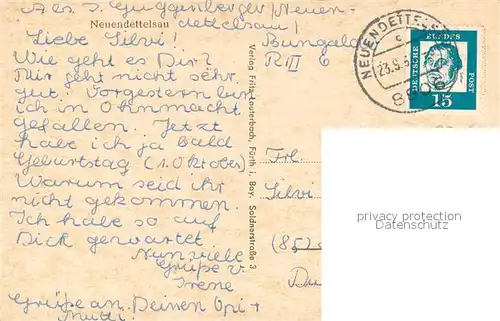 Abs. I. Guggenberger / Neuen-
Neuendettelsau
dettelsau /
Bungalo
R III 6
Liebe Silvi!
Wie geht es Dir?
Mir geht nicht sehr
gut. Vorgestern bin
ich in Ohnmacht
gefallen. Jetzt
habe ich ja bald
Geburtstag (1. Oktober)
Warum seid ihr
nicht gekommen.
Ich habe so auf
Dich gewartet
Nun viele
Grüße v.
Irene
Grüße an Deinen Opi +
Mutti!
Verlag Fritz Lauterbach, Fürth i. Bay. Soldnerstraße 3
NEUENDETTELS
c
23.9.6
8806
DEUTSCHE BUNDESPOST
15
Frl.
Silvi
(852
privacy protection
Datenschutz